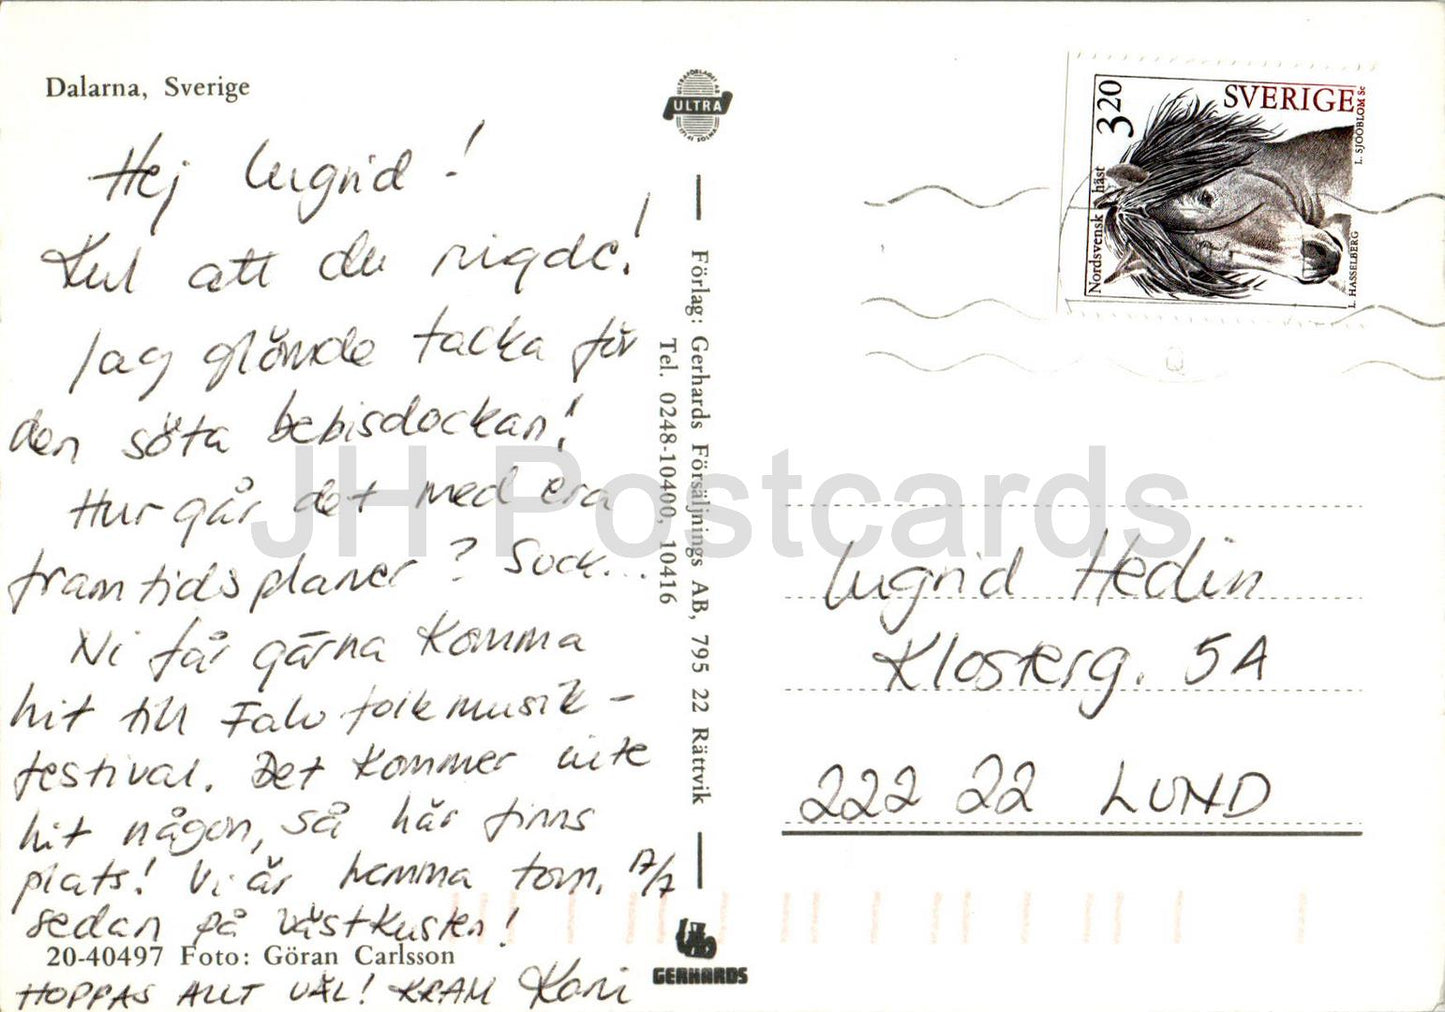 Dalarna, Sverige
Hej Ingrid!
Kul att du ringde!
Jag glömde tacka för
den söta bebisdockan!
Hur går det med era
framtidsplaner? Sock...
Ni får gärna komma
hit till Falu folkmusik-
festival. Det kommer inte
hit någon, så här finns
plats! Vi är hemma tom. 17/7
sedan på västkusten!
20-40497 Foto: Göran Carlsson
HOPPAS ALLT VÄL! KRAM
ULTRA
Förlag: Gerhards Försäljnings AB, 795 22 Rättvik
Tel. 0248-10400, 10416
GERHARDS
SVERIGE
3.20
Nordsvensk häst
L. HASSELBERG
L. SJÖÖBLOM SC
Ingrid Hedin
Klosterg. 5A
222 22 LUND
JH Postcards